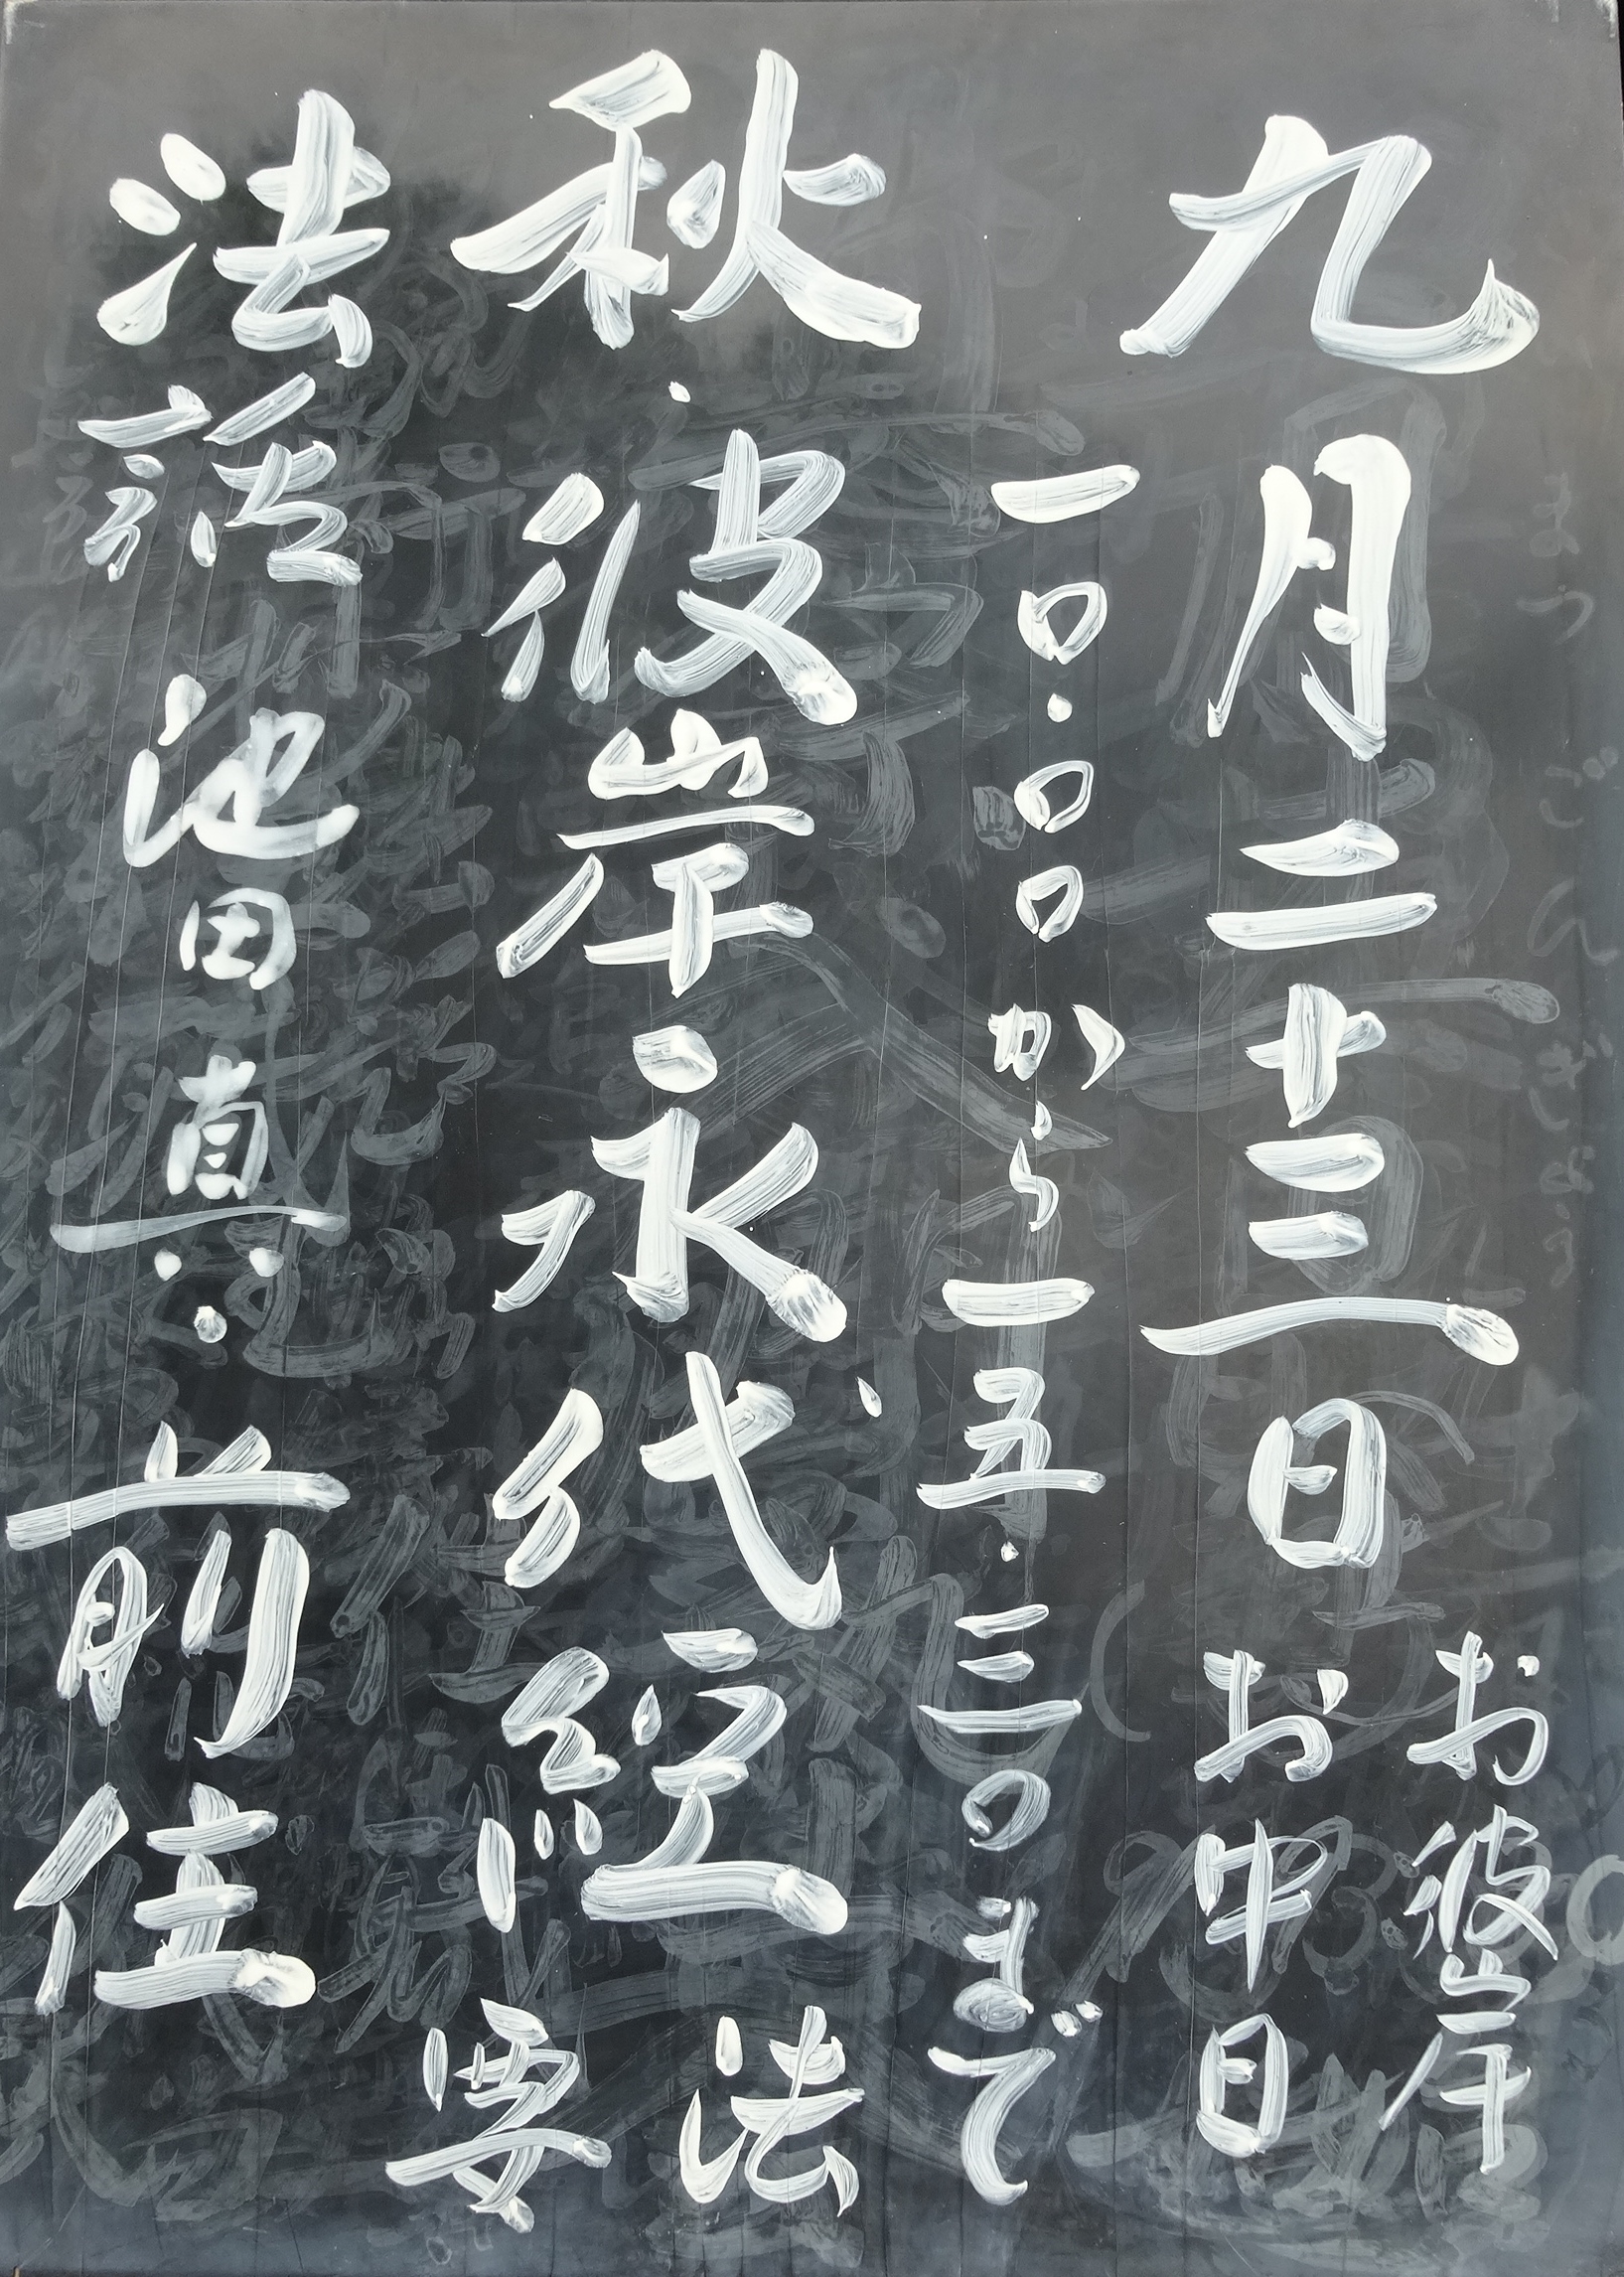 九月二十三日 お彼岸
お中日
一〇・〇〇から一五・三〇まで
秋・彼岸・永代経法
要
法話 池田真・前住